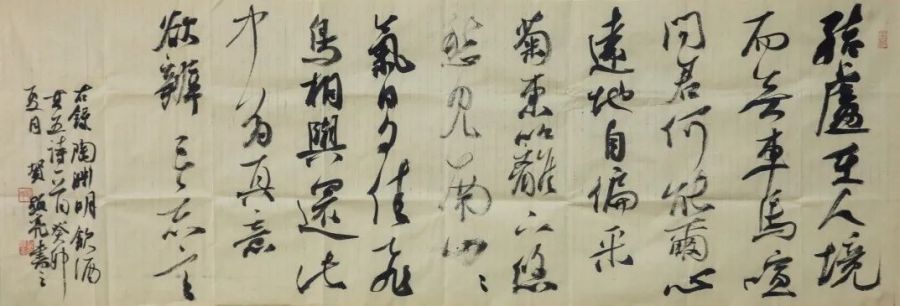 結廬在人境
而無車馬喧
問君何能爾心
遠地自偏采
菊東籬下悠
然見南山〻
氣日夕佳飛
鳥相與還此
中有真意
欲辨已忘言
右錄陶淵明飲酒
其五詩一首癸卯
夏月 賀亮書之